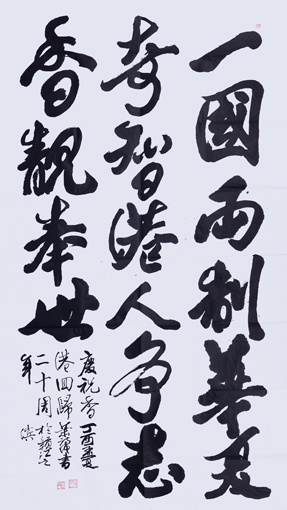 一國兩制華夏
奇智港人爭志
香靚举世
慶祝香
港回歸
二十周
年
丁酉夏
書
於
濱